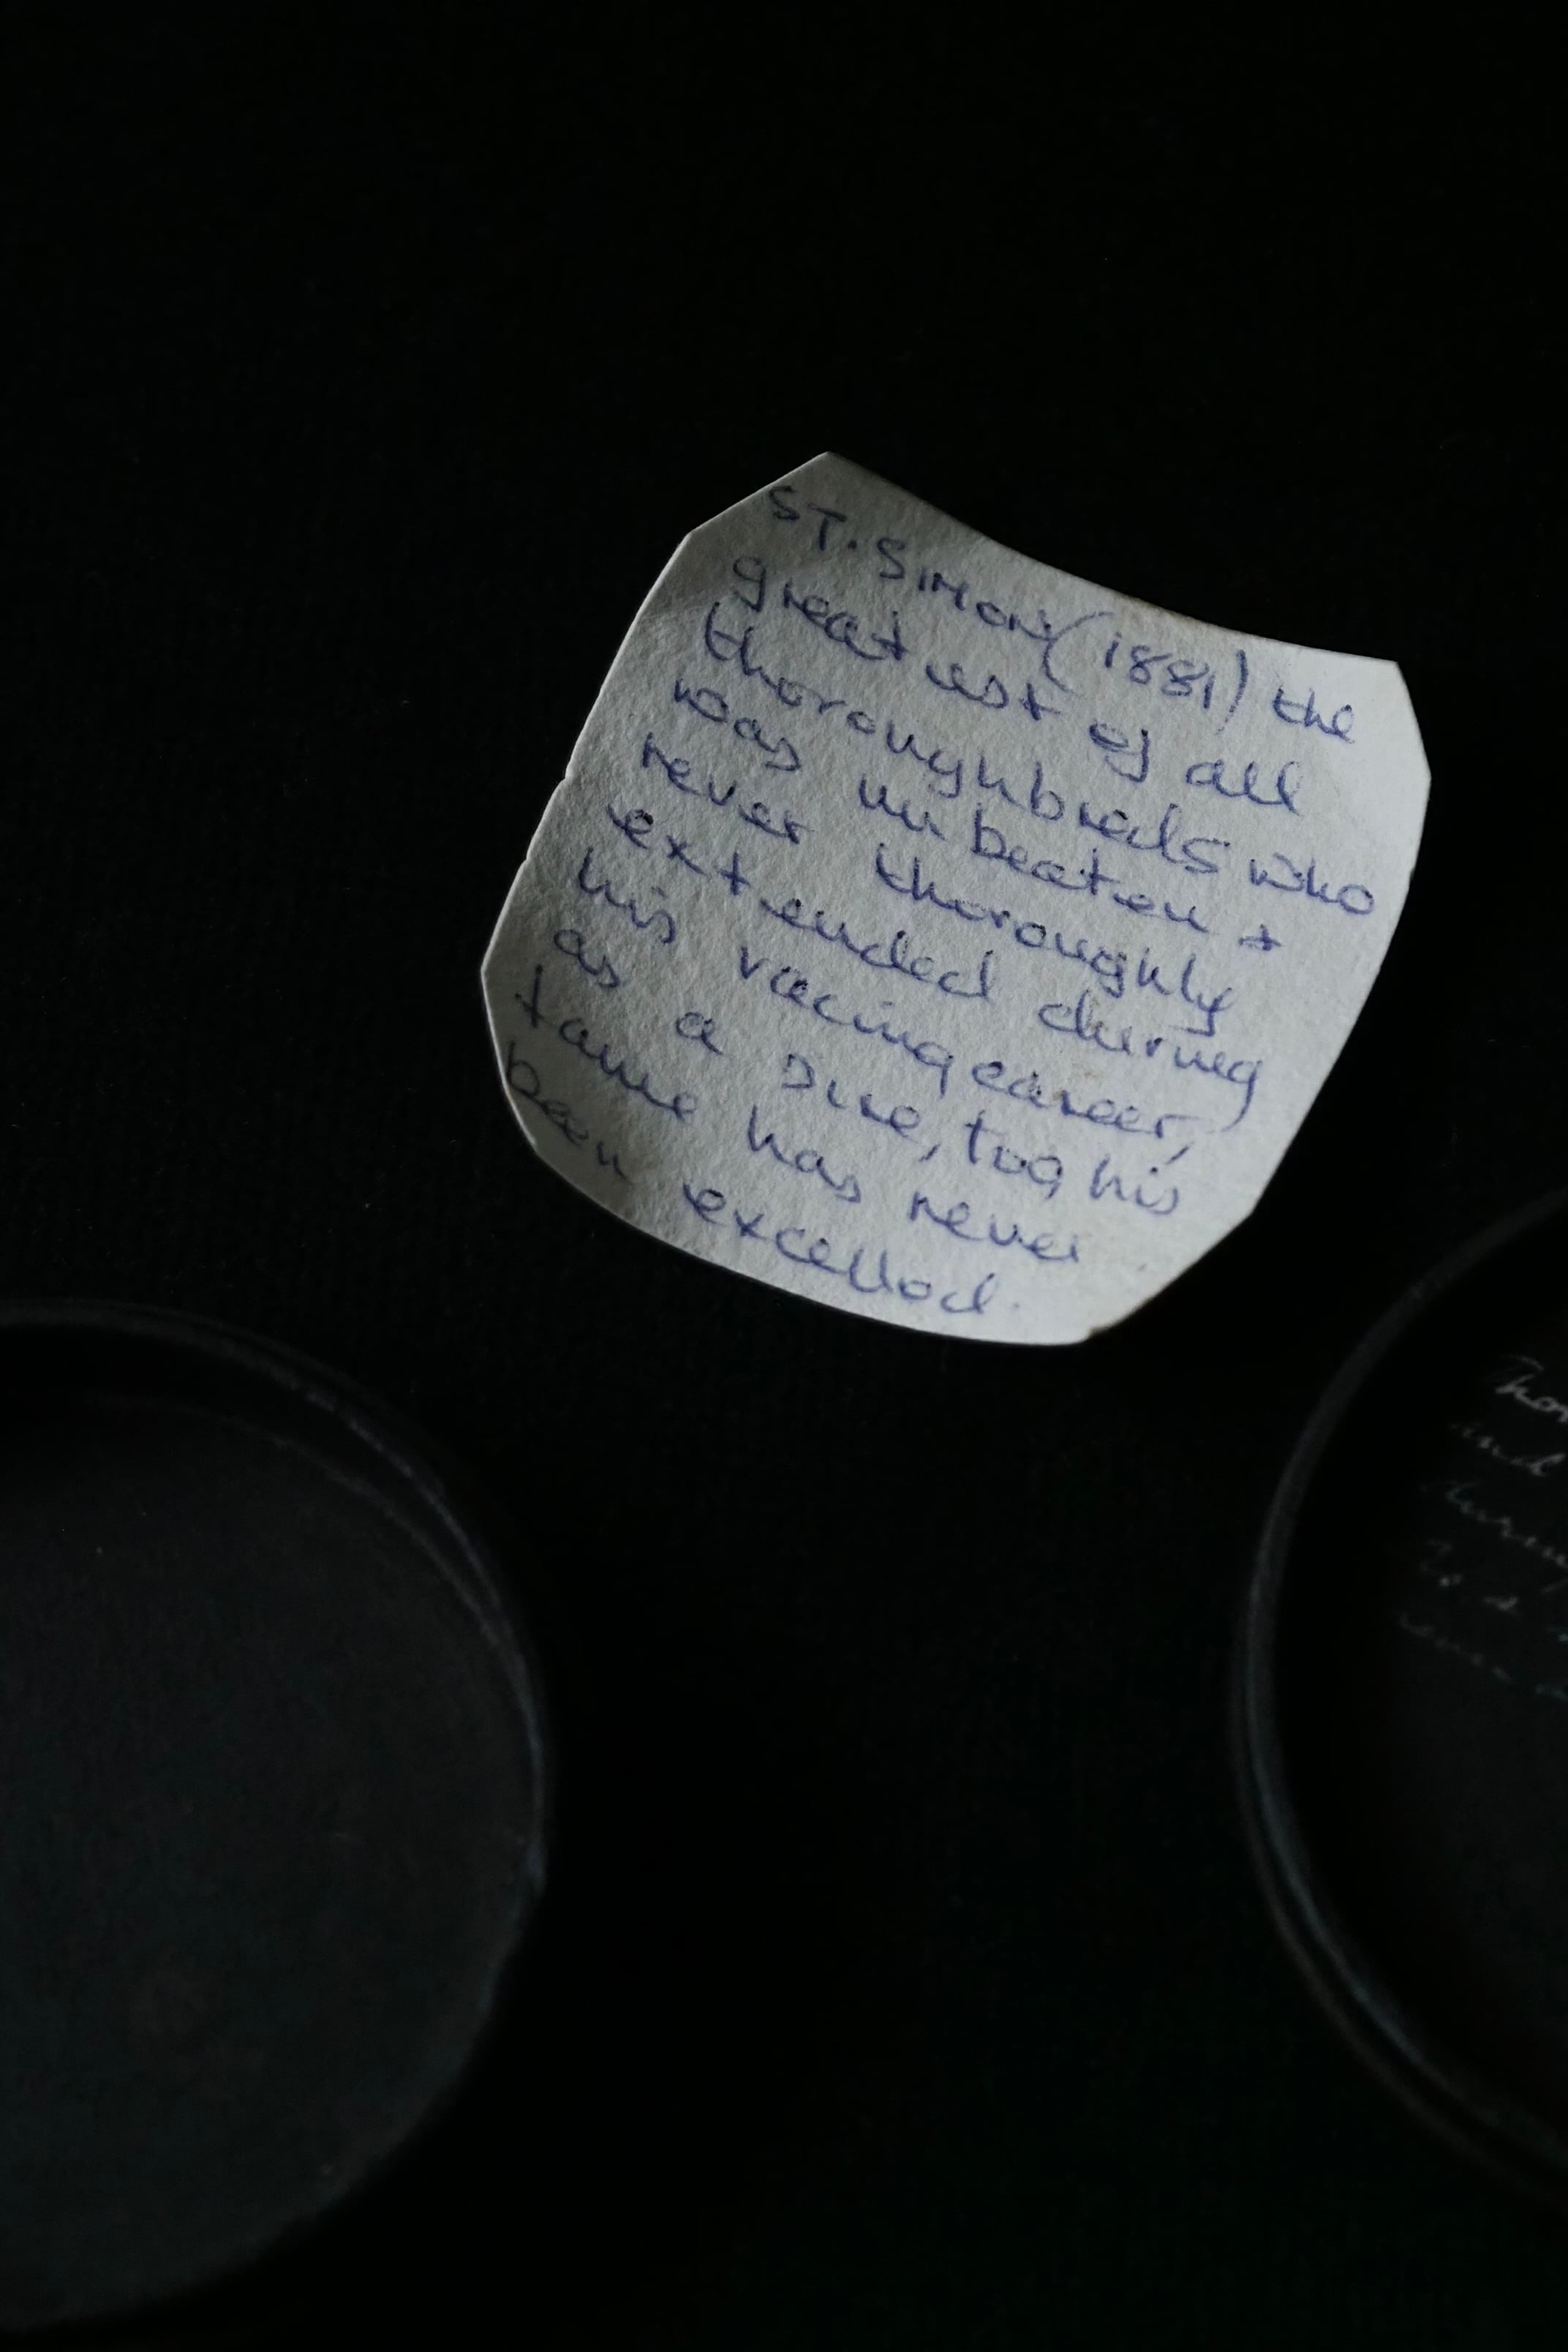 ST. SIMON (1881) the
greatest of all
thoroughbreds who
was unbeaten &
never thoroughly
extended during
his racing career,
as a sire, too, his
fame has never
been excelled.
and